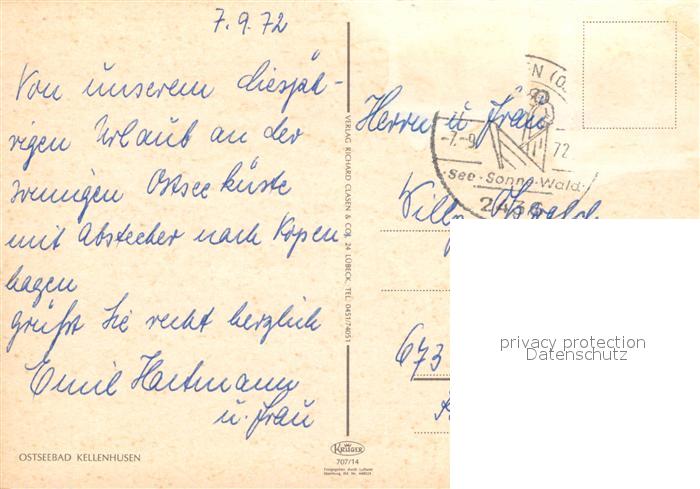 7.9.72
Von unserem diesjäh-
rigen Urlaub an der
sonnigen Ostseeküste
mit Abstecher nach Kopen
hagen
grüßt Sie recht herzlich
Emil Hartmann
u. Frau
OSTSEEBAD KELLENHUSEN
VERLAG RICHARD CLASEN & CO., 24 LÜBECK, TEL. 0451/74051
KRÜGER
707/14
Freigegeben durch Luftamt
Herrn u. Frau
Willy
673
-7.-9.
72
See-Sonne-Wald
2436
privacy protection
Datenschutz